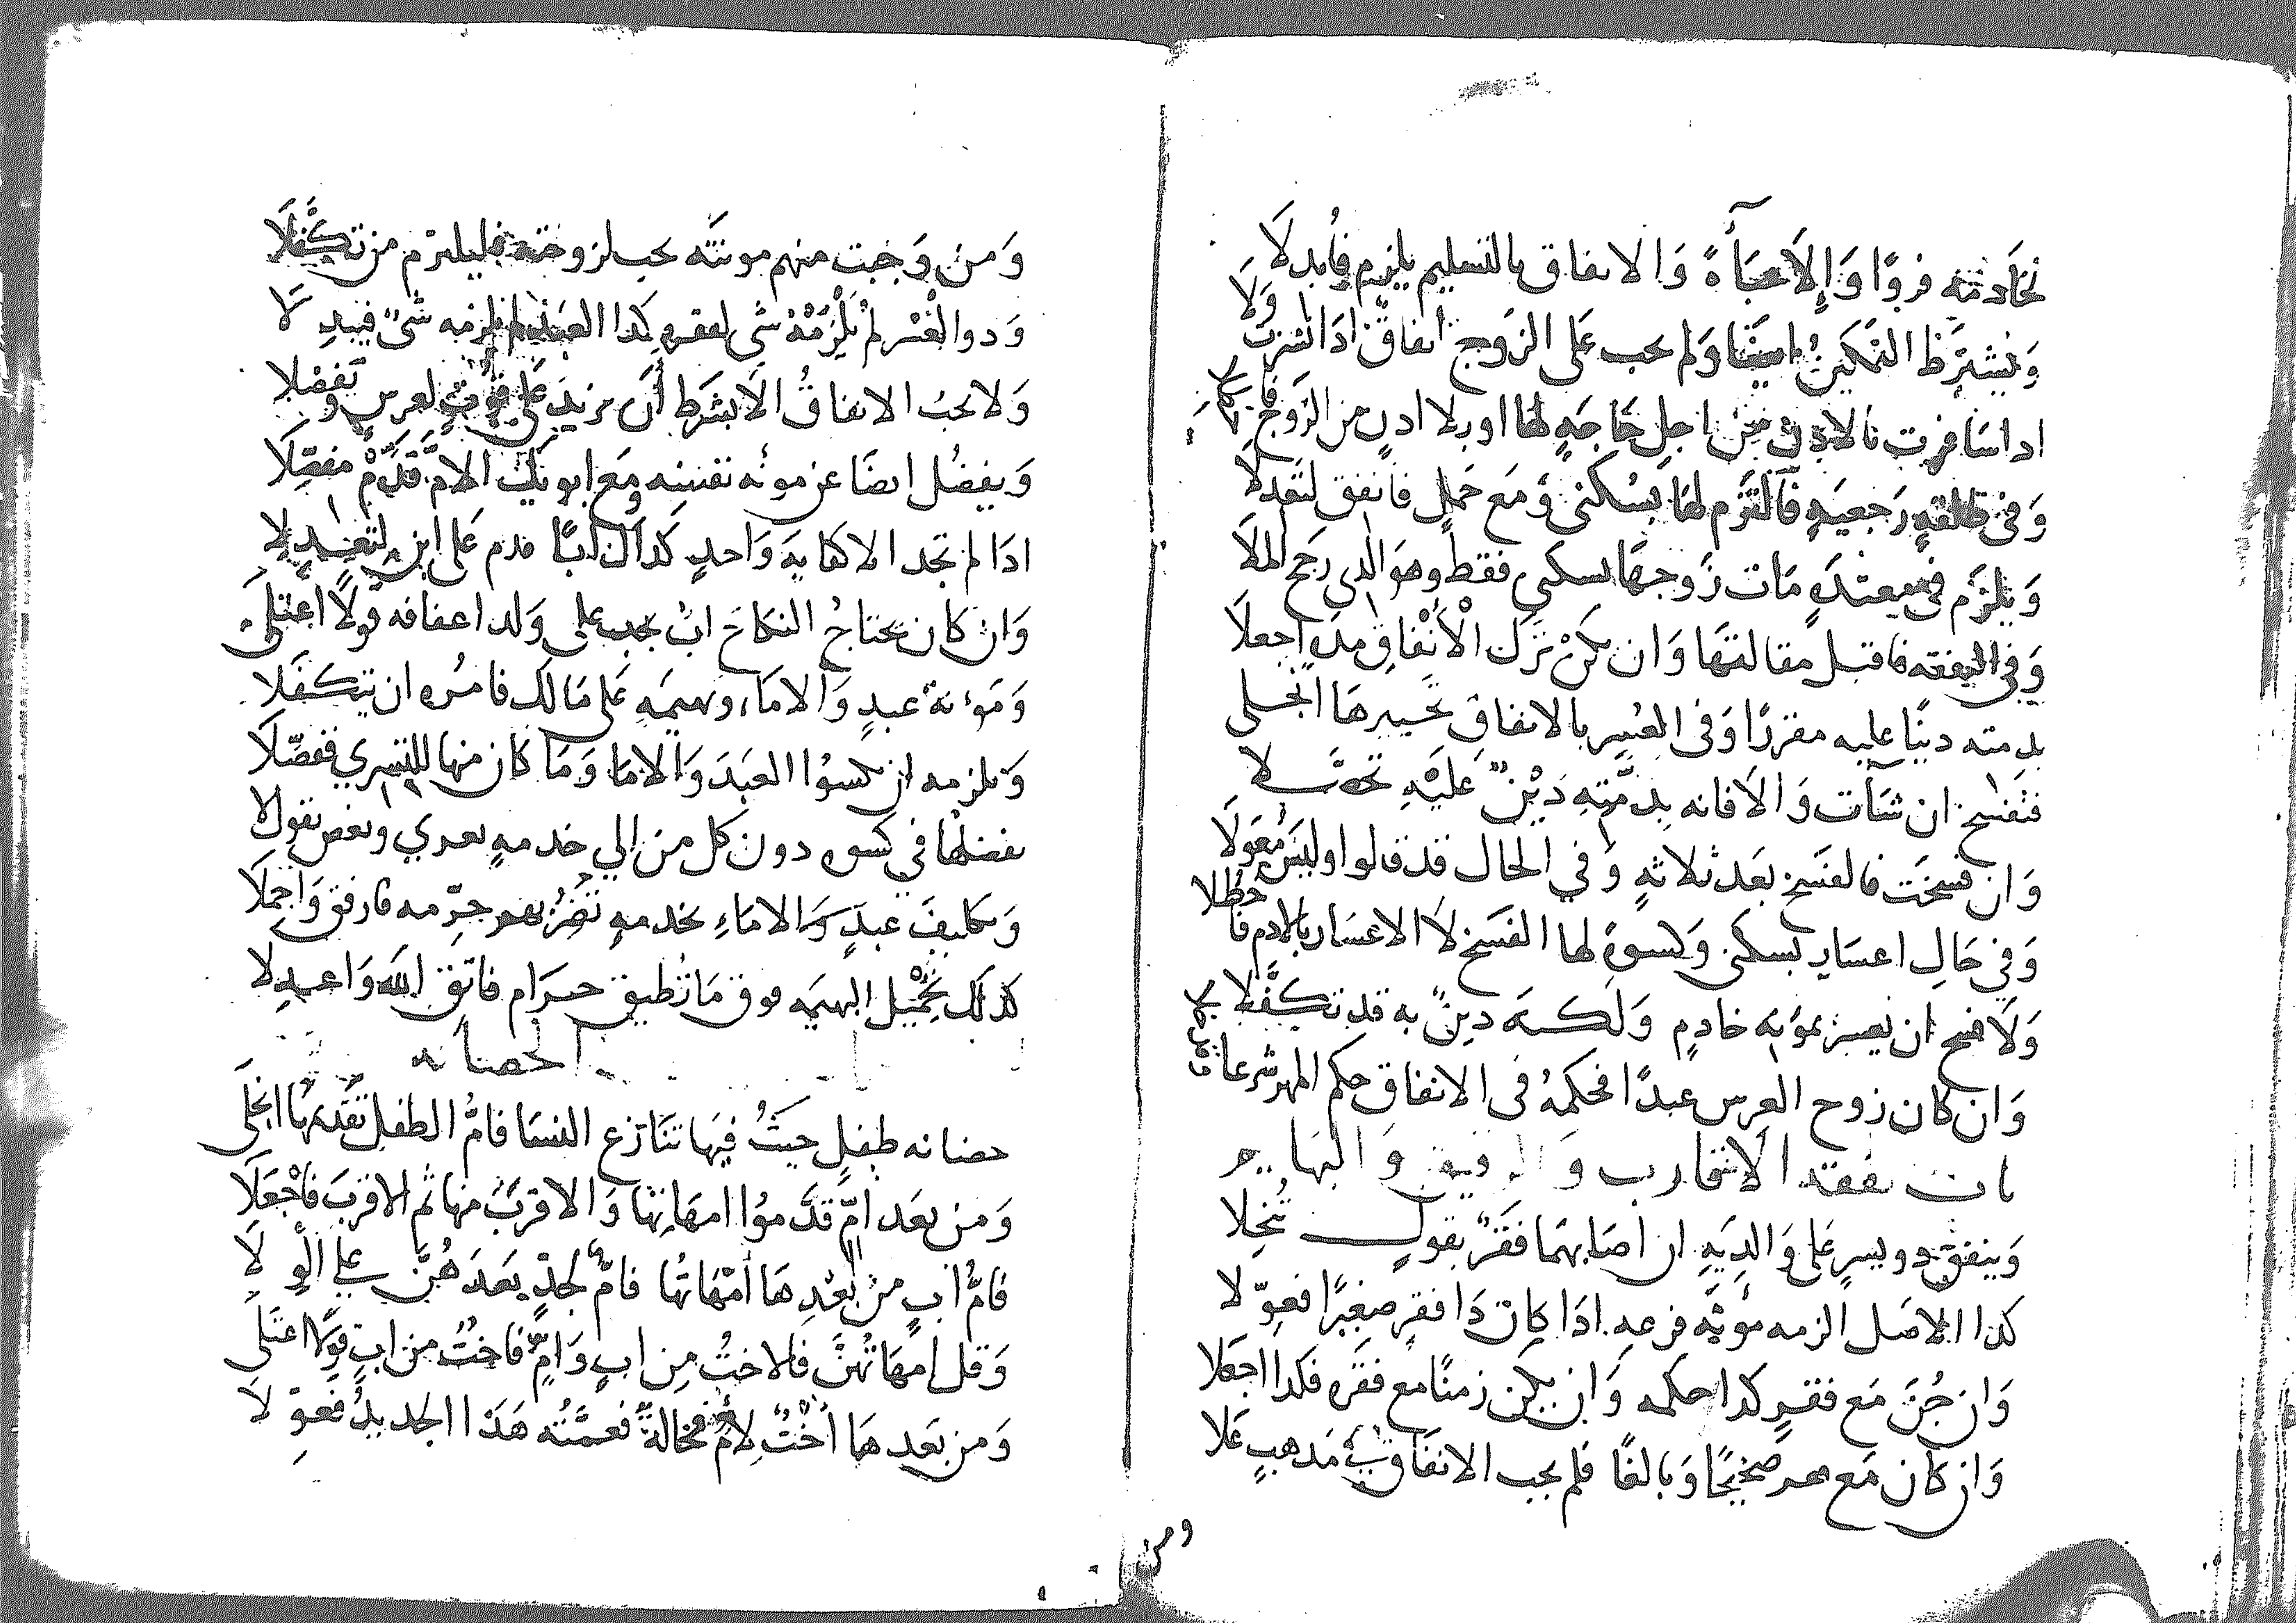 لخادمته فروًا وَإِلا عباءةً وَالانفاق بالتسليم يلزم فابدلا
وَيشترَط التمكينُ ايضًا وَلم يجب عَلى الزوج انفاقٌ اذا نشزت وَلا
اذا سَافرت بالاذن من اجل حَاجةٍ لها او بلا اذنٍ من الزوج فا
وَفى طلقةٍ رَجعيةٍ فَالتزم لهَا بسُكنى وَمَع حَملٍ فانفق لتعدلا
وَيلزَم فى معتدةٍ مَات زَوجهَا بسكنى فقط وهوَ الذي رجح الملا
وَفى النفقه فاقبل مقالتهَا وَان يكن تَرَك الْأنفاقِ مده اجعلا
بذمته دينًا عليه مقررًا وَفى العُسر بالانفاق تخييرها انجلى
فتفسخ ان شَآت وَالا فانه بِذمَّتِهِ دَيْنٌ عَليْهِ تحصَّلا
وَان فسخَت فالفسخ بعَد ثلاثةٍ وَفي الحال قد قالوا وليسَ مُعَولَا
وَفي حَالِ اعسَارٍ بسكنى وَكسوةٍ لها الفسَخ لا الاعسَار بالادم فا حظلا
وَلَا فسخ ان يعسر بموُنه خادمٍ وَلكنه دينٌ به قد تكفَّلا
وَان كان زوج العرس عبدًا فحكمهُ فى الانفاق حكم المهر شرعا
باب نفقة الاقارب وَالرقيق وَالبهايم
وَينفق ذو يسرٍ عَلى وَالدِيَهِ ان اصَابهمَا فقرٌ بقولٍ تُنخِلا
كذا الاصَل الزمه مؤنةَ فرعهِ اذا كان ذَا فقرٍ صغيرًا فعوِّلا
وَان جُنَّ مَع فقرٍ كذا حكمه وَان يكن زمنًا مع فقره فكذا اجعَلا
وَان كان مَع صحيحًا وَبالغًا فلم يجب الانفاق فى مَذهبٍ عَلا
ومن
وَمن وَجبت منهم مونته يجب لزوجته فليلتزم من تكفَّلَا
وَذو العُسْر لم يَلزَمْهُ شى لفقرهِ كذا العبد لم يلزمه شىٌ فيبدلَا
وَلا يجبُ الانفاقُ الا بشرط أن يزيد عَلى قوتٍ لعرسٍ وتفضلا
وَيفضُل ايضًا عن مونه نفسه ومَع ابويك الامَّ قَدِّمْ مفصِّلَا
اذا لم تجد الا كفايةَ وَاحدٍ كذاك ابًا قدم عَلى ابنٍ لتعدلا
وَان كان يحتاجُ النكاحَ ابٌ يجب على وَلد اعفافه قولًا اعتلى
وَمَؤنة عبدٍ وَالاماء وبهيمَهِ عَلى مَالك فامُره ان يتكفَّلا
وَيلزمه ان يكسوُا العبَدَ وَالاما وَمَا كان منها للتسري ففضِّلَا
بفضلها في كسوه دون كل من الي خدمهٍ تعزي وبعض يقول لا
وَتكليف عبدٍ وَالاماءِ بخدمهٍ تضرُّ بهم حرِّمه فارفق وَاجملَا
كذلك تحمْيل البهيمَه فوق مَا تطيق حرَام فاتق الله وَاعدلا
الحضانه
حضانه طفلٍ حيثُ فيهَا تنازع النسَا فامُّ الطفل تقديمها انجلَى
وَمن بعَد امٍّ قدَّموُا امهاتها وَالاقربَ منها ثم الاقربَ فاجْعَلَا
فامُّ ابٍ من بَعْدِهَا أمَّهَاتُها فامٌّ لجدٍّ بعَدَهُنَّ على الْوِلَا
وَقل امهَاتُهُنَّ فالاختُ مِن ابٍ وَامٍّ فاختٌ من ابٍ قولًا اعتلَى
وَمن بعَدهَا أُخْتٌ لِامٍّ فخالةٌ فعمَّتُه هَذا الجديدُ فعوِّلَا